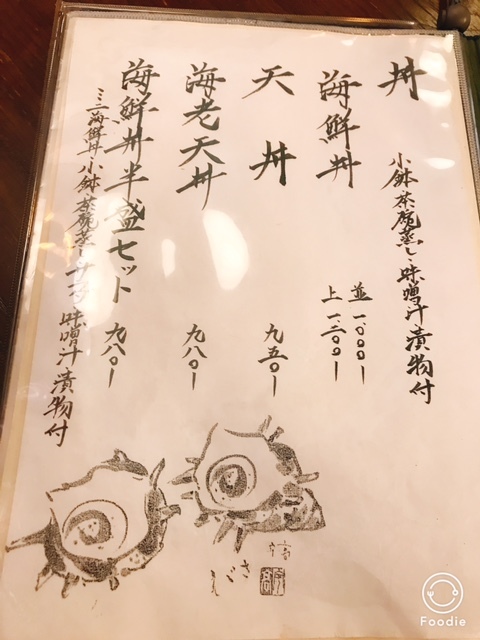 丼
小鉢・茶碗蒸し・味噌汁・漬物付
海鮮丼
並 一、〇〇〇ー
上 一、三〇〇ー
天丼
九五〇ー
海老天丼
九八〇ー
海鮮丼半盛セット
九八〇ー
ミニ海鮮丼・小鉢・茶碗蒸し・サラダ・味噌汁・漬物付
さざえ
Foodie